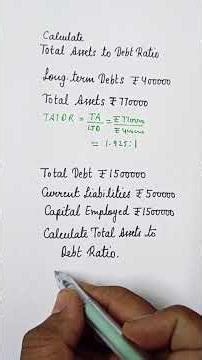 Calculate
Total Assets to Debt Ratio
Long-term Debts ₹ 400000
Total Assets ₹ 770000
TATDR = TA/LTD = ₹770000/₹400000
= 1.925:1
Total Debt ₹ 1500000
Current Liabilities ₹ 500000
Capital Employed ₹ 1500000
Calculate Total Assets to
Debt Ratio.